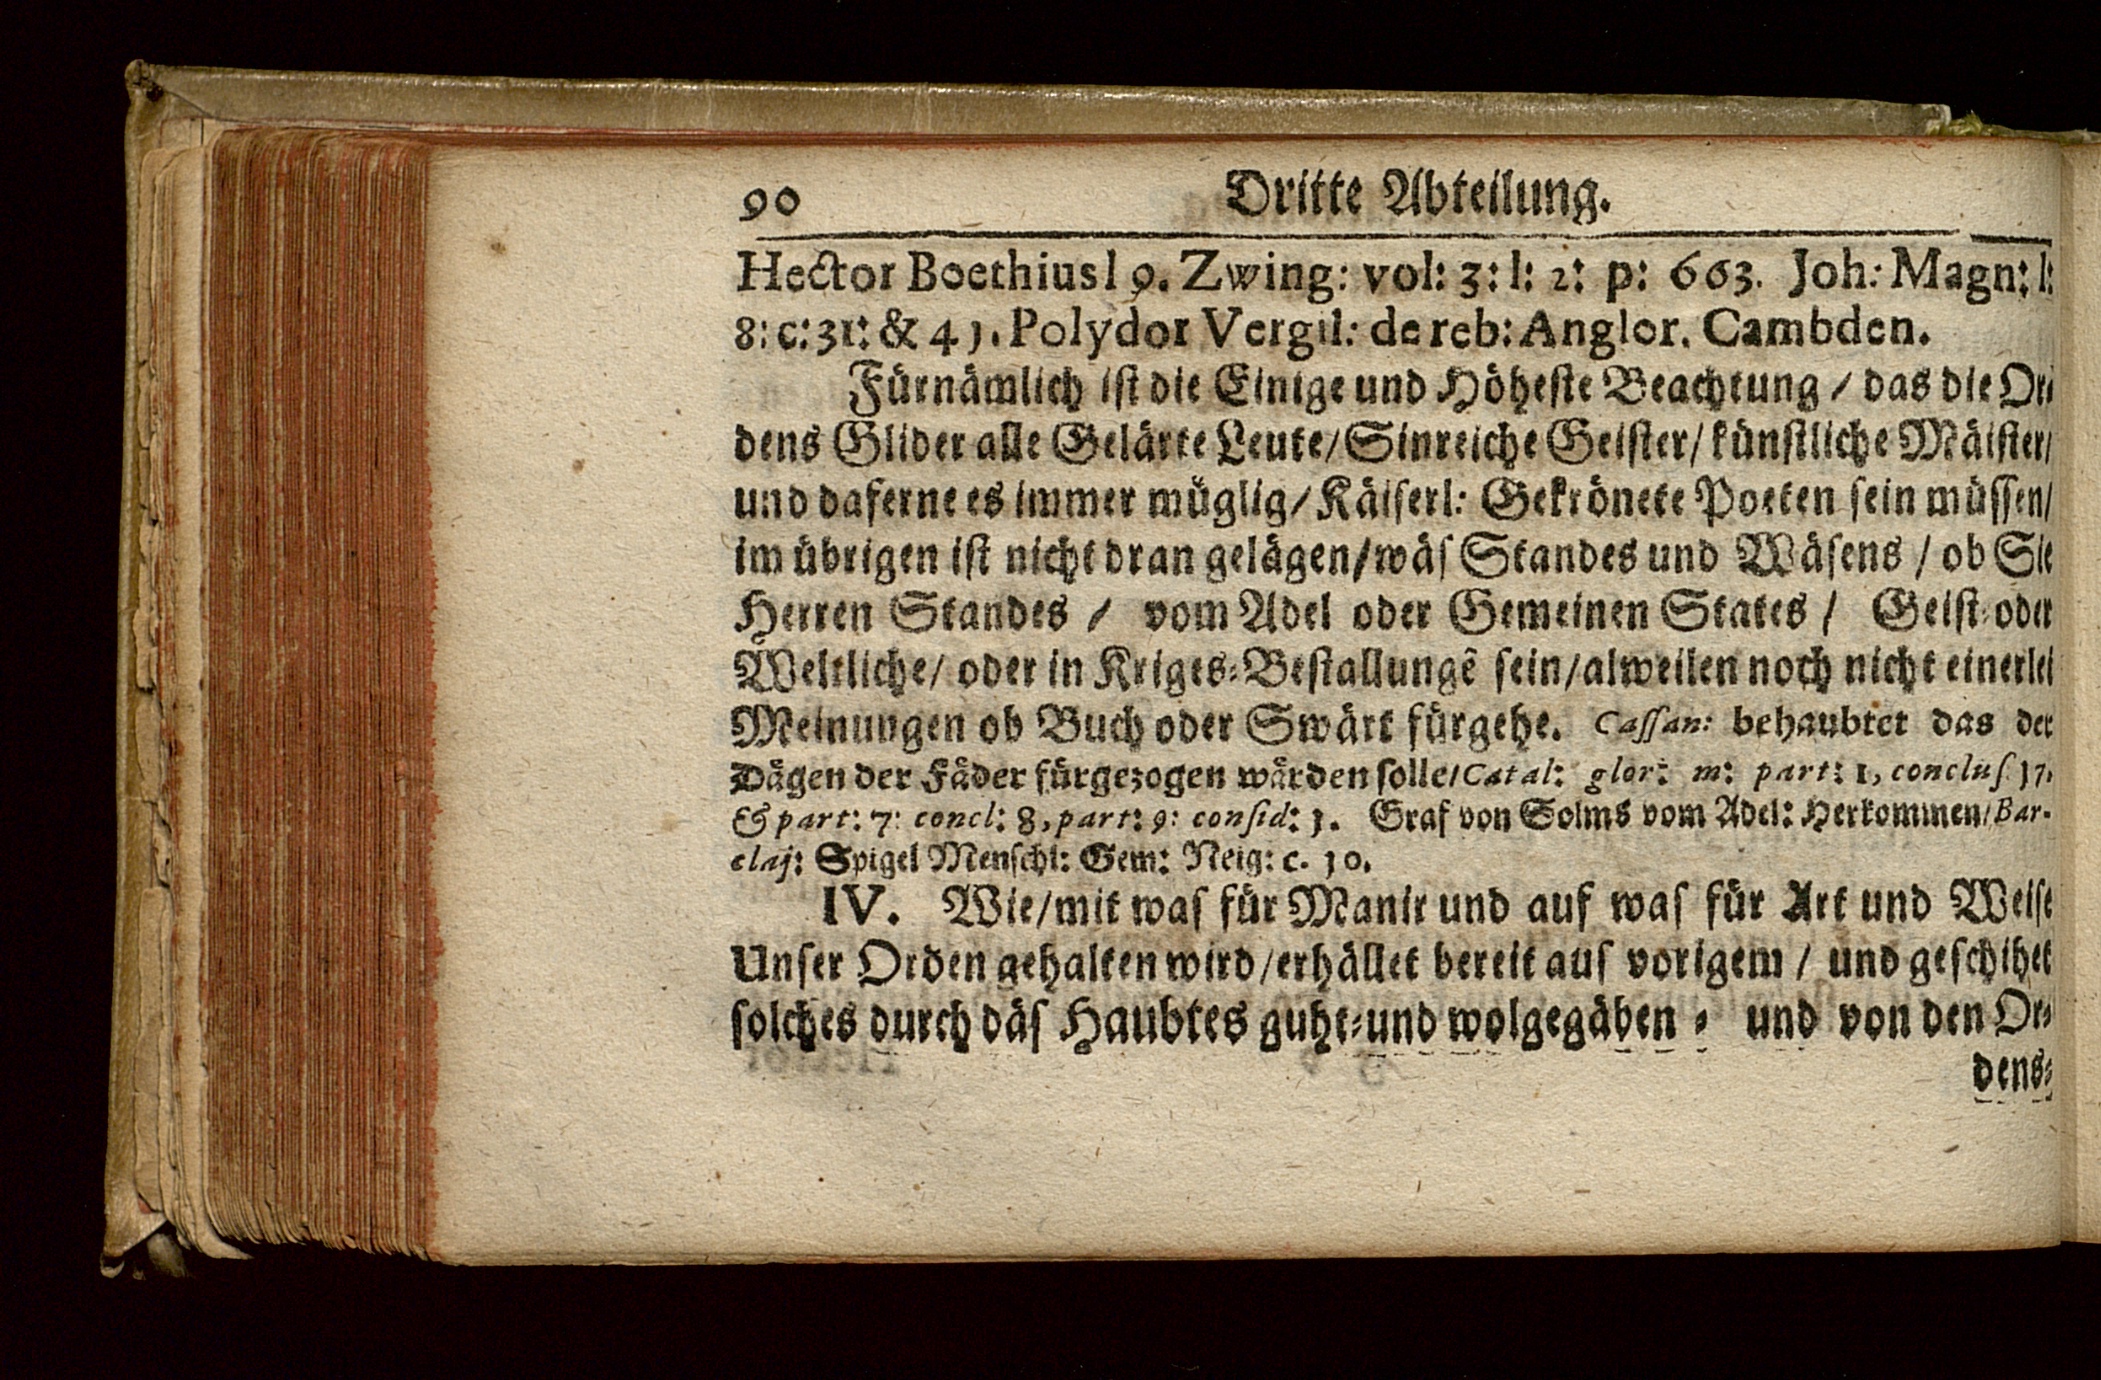 90 Dritte Abteilung.
Hector Boethius l 9. Zwing: vol: 3: l: 2: p: 663. Joh: Magn: l:
8: c: 31: & 41. Polydor Vergil: de reb: Anglor. Cambden.
Fürnämlich iſt die Einige und Höheſte Beachtung / das die Or⸗
dens Glider alle Gelärte Leute/ Sinreiche Geiſter/ künſtliche Mäiſter/
und daferne es immer müglig/ Käiſerl: Gekrönete Poeten ſein müſſen/
im übrigen iſt nicht dran gelägen/ wäſ Standes und Wäſens / ob Sie
Herren Standes / vom Adel oder Gemeinen States / Geiſt⸗ oder
Weltliche/ oder in Kriges⸗Beſtallungē ſein/ alweilen noch nicht einerlei
Meinungen ob Buch oder Swärt fürgehe. Caſſan: behaubtet das der
Dägen der Fäder fürgezogen wärden ſolle/ Catal: glor: m: part: 1, concluſ. 17.
& part: 7: concl: 8, part: 9: conſid: 1. Graf von Solms vom Adel: Herkommen/ Bar-
claj: Spigel Menſchl: Gem: Neig: c. 10.
IV. Wie/ mit waſ für Manir und auf waſ für Art und Weiſe
Unſer Orden gehalten wird/ erhället bereit auſ vorigem / und geſchihet
ſolches durch däſ Haubtes guht⸗und wolgegäben ⸗ und von den Or⸗
dens⸗